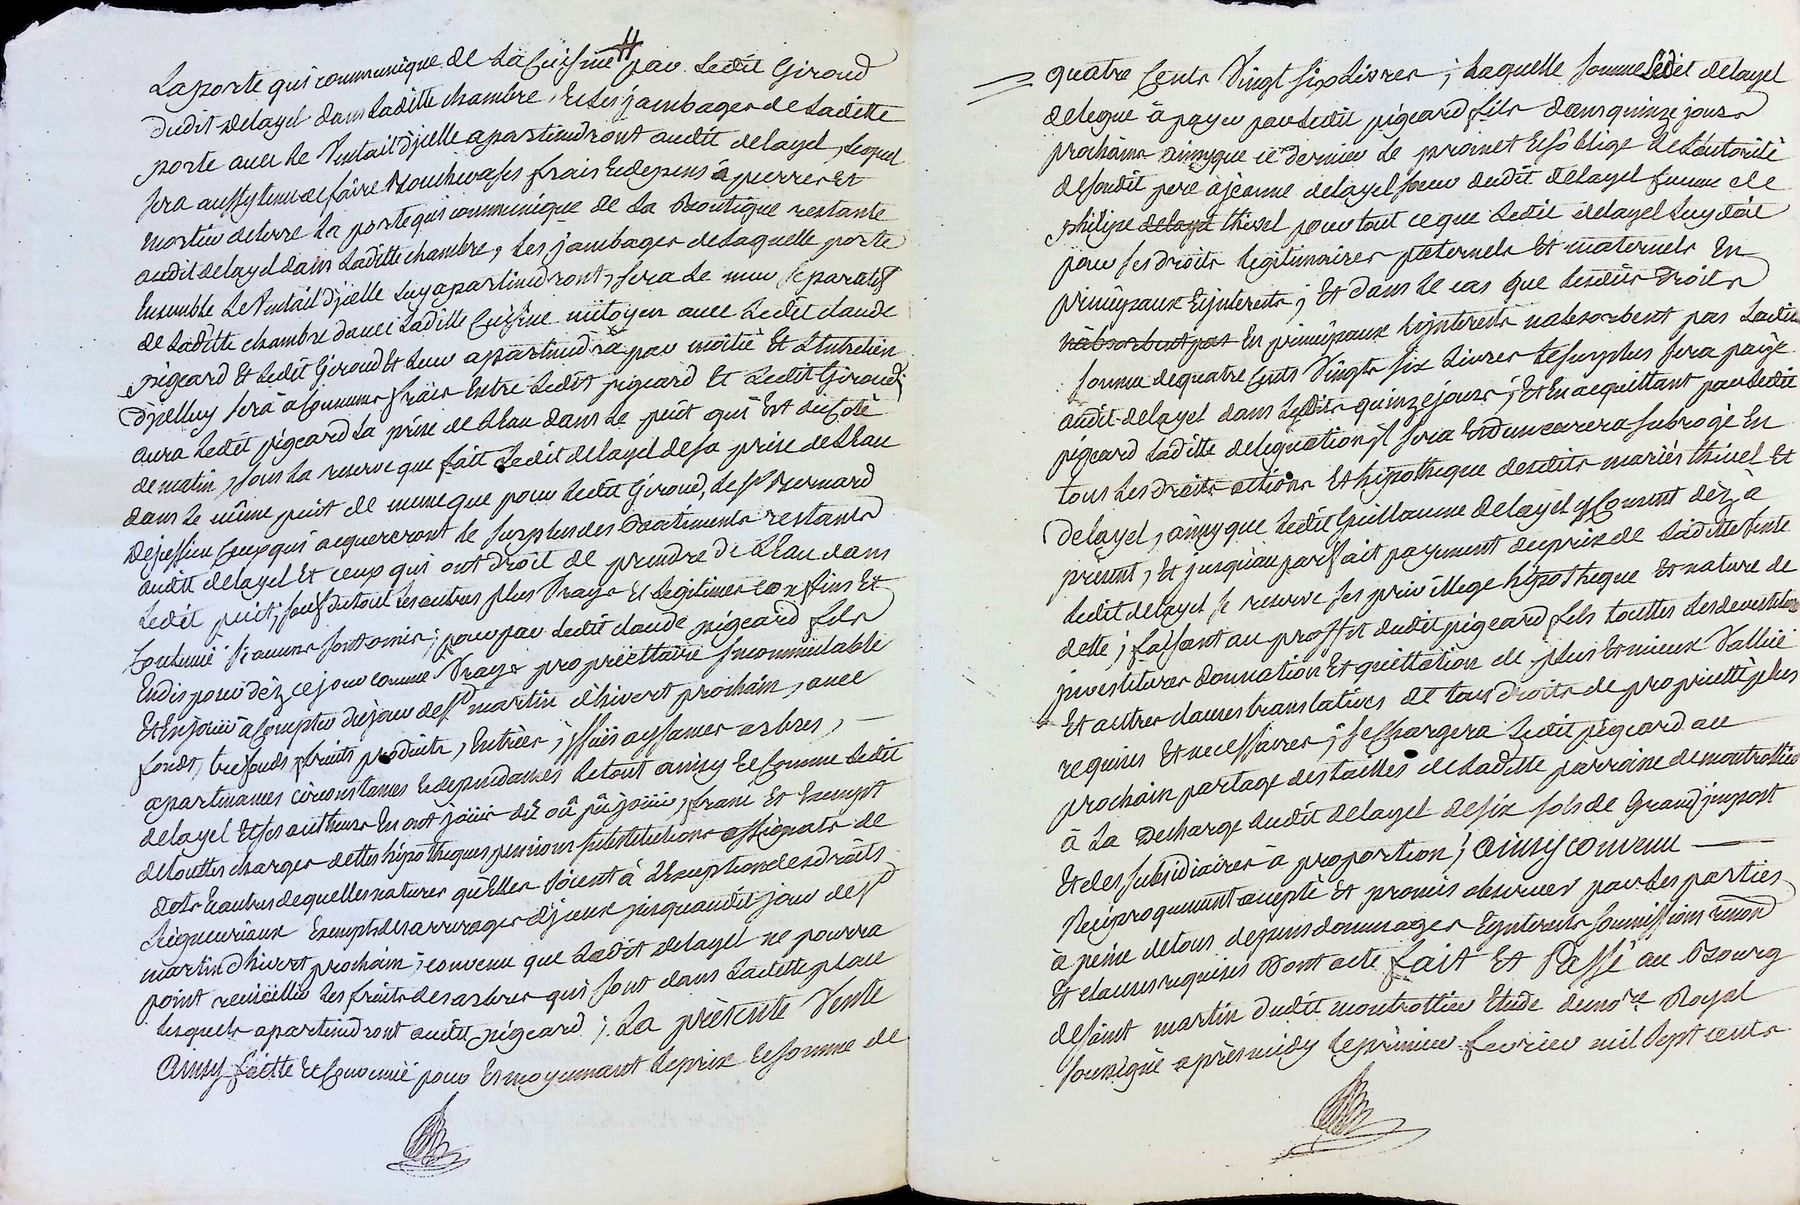 La porte qui communique de La Cuisine par Ledit Giroud
Dudit delayel dans Laditte chambre, Et Les jambages de Laditte
porte avec Le Ventail d'jcelle apartiendront audit delayel, Lequel
sera aussy tenu de faire Boucher a ses frais Et depens à pierres Et
mortier de terre La porte qui communique de La Boutique restante
audit delayel dans Laditte chambre, Les jambages de Laquelle porte
Ensemble Le Ventail d'jcelle Luy apartiendront, sera Le mur separatif
de Laditte chambre d'avec Laditte Cuisine mitoyen avec Ledit claude
pigeard Et Ledit Giroud Et Leur apartiendra par moitié Et L'Entretien
D'jcelluy sera à Communs frais Entre Ledit pigeard Et Ledit Giroud
aura Ledit pigeard La prise de L'Eau dans Le puit qui Est du Coté
de matin, sous La reserve que fait Ledit delayel de sa prise de L'Eau
dans Le même puit de meme que pour Ledit Giroud, Le Sr Bernard
Dejussieu Ceux qui acquereront Le surplus des Batiments restants
audit delayel Et ceux qui ont droit de prendre de L'Eau dans
Ledit puit; sauf du tout Les autres plus Vrays Et Legitimes confins Et
Contenue si aucuns sont omis; pour par Ledit claude pigeard fils
En dispozer dèz ce jour comme Vraye proprietaire Incommutable
Et En jouir à Compter du jour de St martin d'hivert prochain, avec
fonds, trefonds, fruits produits, Entrées, jssuës aysances arbres, —
apartenances circonstances Et dependances Le tout ainsy Et Comme Ledit
delayel Et ses autheurs En ont jöuis dû où pû jouir, franc Et Exempt
de touttes charges dettes hipotheques pensions substitutions assignats de
dots Et autres de quelles natures qu'Elles soient à L'Exception des droits
Seigneuriaux Exempts des arrerages d'jceux jusqu'audit jour de St
martin d'hivert prochain; convenu que Ledit delayel ne pourra
point recüeillir Les fruits des arbres qui sont dans Laditte place
Lesquels apartiendront audit pigeard; La presente Vente
Ainsy faitte Et Convenuë pour Et moyennant Le prix Et somme de
quatre Cents Vingt six Livres; Laquelle somme Ledit delayel
delegue à payer par Ledit pigeard fils dans quinze jours
prochains ainsy que ce dernier Le promet Et s'oblige de L'autorité
de sondit pere à jeanne delayel soeur dudit delayel femme de
philipe delayel thivel pour tout ce que Ledit delayel Luy doit
pour ses droits Legitimaires paternels Et maternels En
principaux Et jnterests; Et dans Le cas que Lesdits droits
n'absorbent pas En principaux Et jnterests n'absorbent pas Ladite
somme de quatre Cents Vingts six Livres Le surplus sera payé
audit delayel dans Lesdits quinze jours; Et En acquittant par Ledit
pigeard Laditte delegation jl sera Et demeurera subrogé En
tous Les droits actions Et hipotheque desdits mariés thivel Et
Delayel, ainsy que Ledit Guillaume delayel y Consent dèz à
present, Et jusqu'au parfait payement du prix de Laditte Vente
Ledit delayel se reserve ses privillege hipotheque Et nature de
dette; faisant au proffit dudit pigeard fils touttes Les devestitures
jnvestitures donnation Et quittation de plus Et mieux Vallüe
Et autres clauses translatives de tous droits de proprietté plus
requises Et necessaires; se Chargera Ledit pigeard au
prochain partage des tailles de Laditte parroisse de montrottier
à La Decharge dudit delayel de six sols de Grand jmpost
Et des subsidiaires à proportion; Ainsy convenu —
Reciproquement accepté Et promis observer par Les parties
à peine de tous depens dommages Et jnterests soumissions renond
Et clauses requises Dont acte fait Et Passé au Bourg
de saint martin dudit montrottier Etude de nore Royal
soussigné après midy Le premier fevrier mil Sept cents